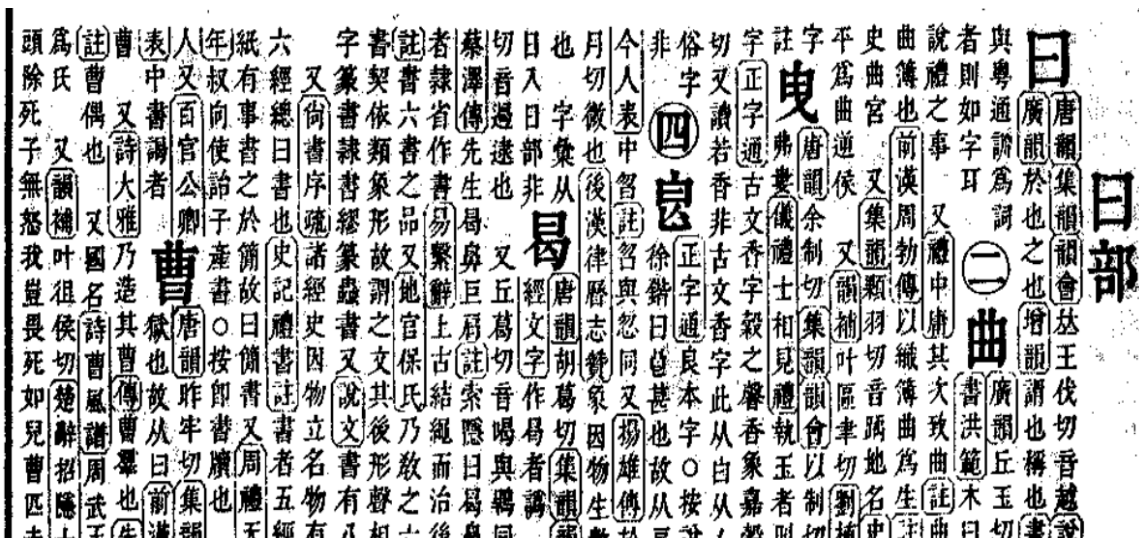 曰部
曰 唐韻集韻韻會𠀤王伐切音越說
廣韻於也之也增韻謂也稱也書
與粵通為詞 ㊁曲 廣韻丘玉切
者則如字耳 書洪範木曰
說禮之事 又禮中庸其次致曲註曲
曲簿也前漢周勃傳以織簿曲為生註
史曲宮 又集韻顆羽切音踽地名史
平為曲逆侯 又韻補叶區聿切劉楨
字 曳 唐韻余制切集韻韻會以制切
註 弗婁儀禮士相見禮執玉者則
字正字通古文香字榖之馨香象嘉榖
切又讀若香非古文香字此从白从人
俗字 ㊃㫐 正字通良本字○按說
非 徐鍇曰甚也故从
今人表中曶註曶與忽同又揚雄傳於
月切微也後漢律曆志贊象因物生數
也 字彙从 曷 唐韻胡葛切集韻韻
日入日部非 經文字作曷者譌
切音遏逮也 又丘葛切音喝與鶡同
蔡澤傳先生曷鼻巨肩註索隱曰曷鼻
者隸省作書易繫辭上古結繩而治後
註書六書之品又地官保氏乃敎之六
書契依類象形故謂之文其後形聲相
字篆書隸書繆篆蟲書又說文書有八
又尙書序疏諸經史因物立名物有
六經總曰書也史記禮書註書者五經
紙有事書之於簡故曰簡書又周禮天
年叔向使詒子產書○按卽書牘也
人又百官公卿 曹 唐韻昨牢切集韻
表中書謁者 獄也故从曰前漢
曹 又詩大雅乃造其曹傳曹羣也
註曹偶也 又國名詩曹風譜周武王
為氏 又韻補叶徂侯切楚辭招隱士
頭除死子無怒我豈畏死如兒曹匹夫